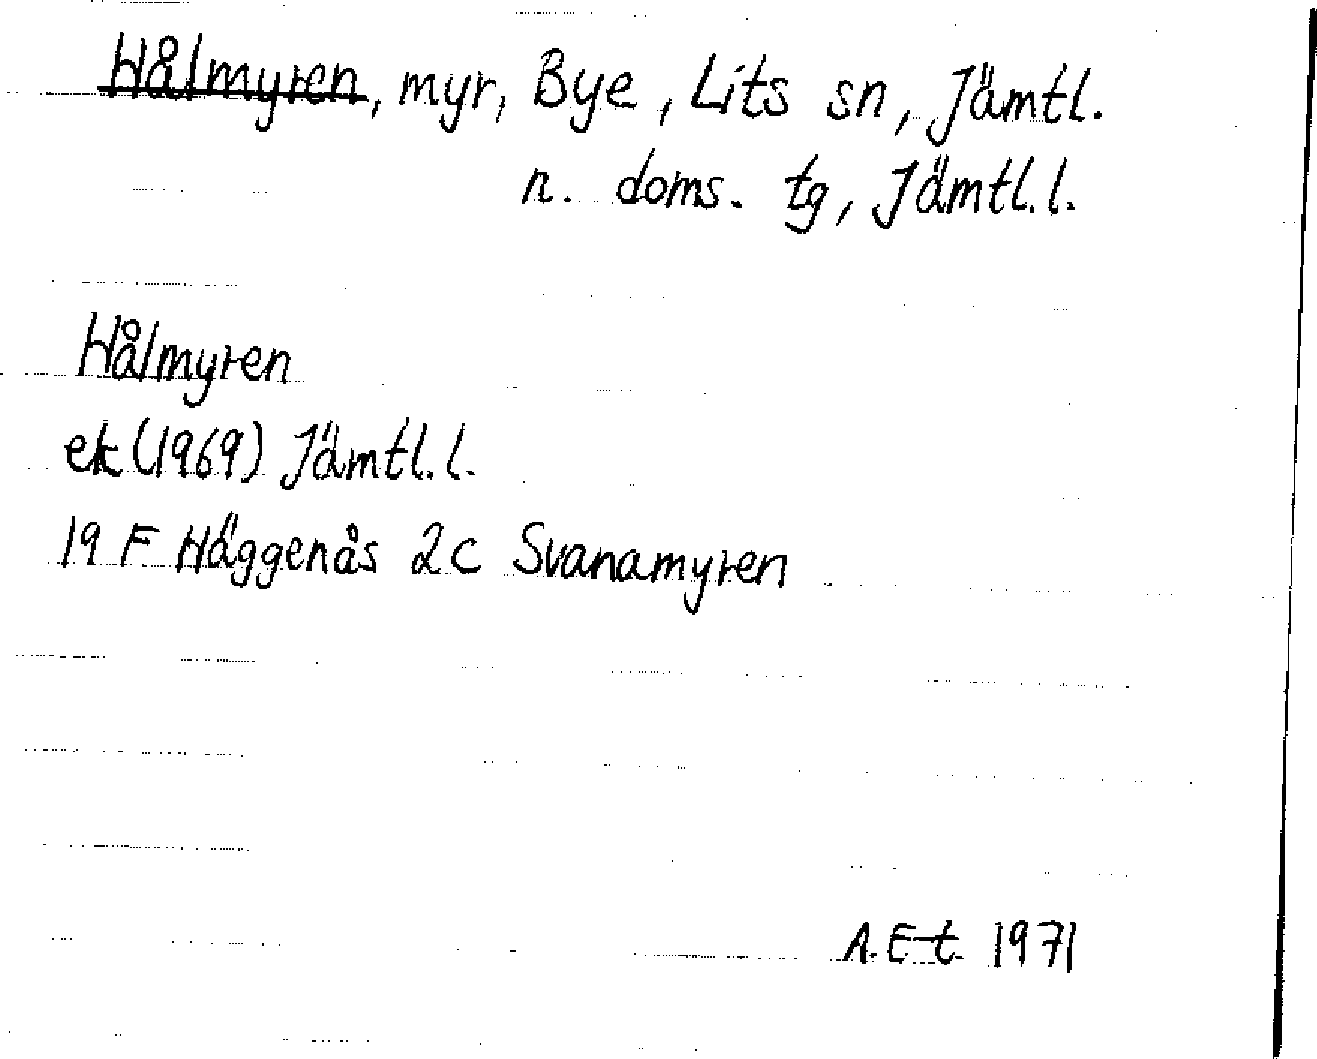 Hålmyren, myr, Bye, Lits sn, Jämtl.
n. doms. tg, Jämtl.l.
Hålmyren
ek (1969) Jämtl.l.
19 F Häggenås 2c Svanamyren
A. E-t 1971